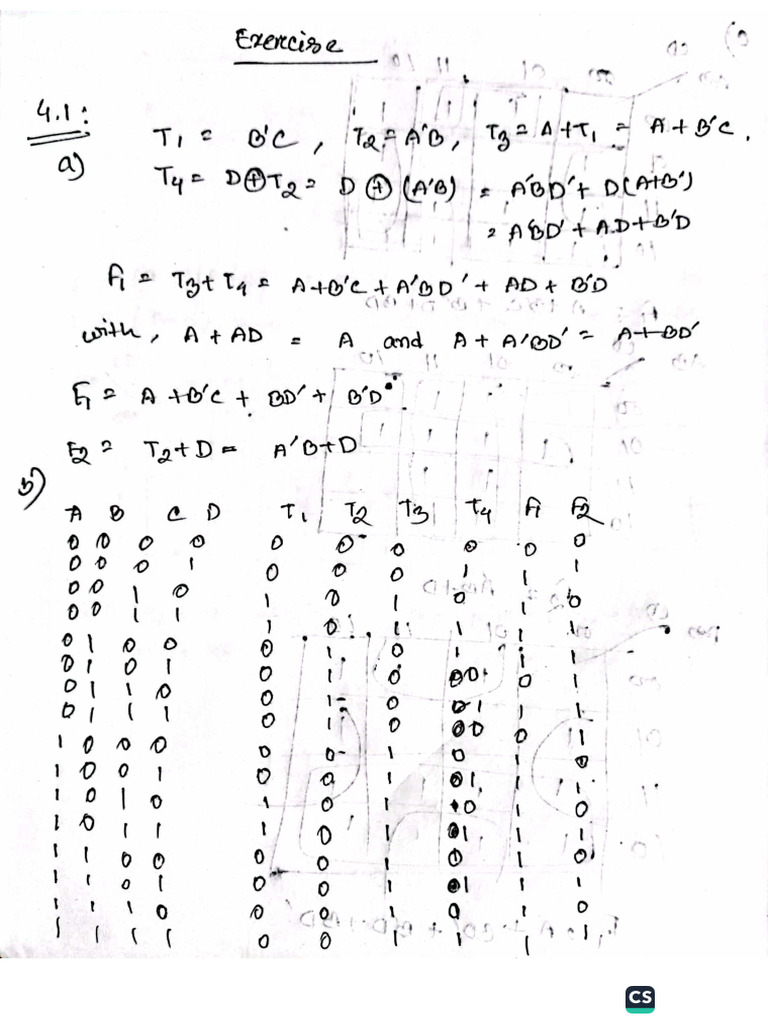 Exercise
4.1:
a)
T1 = B'C, T2 = A'B, T3 = A+T1 = A+B'C.
T4 = D⊕T2 = D⊕(A'B) = A'BD' + D(A+B')
= A'BD' + AD + B'D
F1 = T3+T4 = A+B'C+A'BD' + AD + B'D
with, A + AD = A and A + A'BD' = A+BD'
F1 = A + B'C + BD' + B'D
F2 = T2+D = A'B+D
b)
A B C D T1 T2 T3 T4 F1 F2
0 0 0 0 0 0 0 0 0 0
0 0 0 1 0 0 0 1 1 1
0 0 1 0 1 0 1 0 1 0
0 0 1 1 1 0 1 1 1 1
0 1 0 0 0 1 0 1 1 1
0 1 0 1 0 1 0 0 0 1
0 1 1 0 0 1 0 1 1 1
0 1 1 1 0 1 0 0 0 1
1 0 0 0 0 0 1 0 1 0
1 0 0 1 0 0 1 1 1 1
1 0 1 0 1 0 1 0 1 0
1 0 1 1 1 0 1 1 1 1
1 1 0 0 0 0 1 0 1 0
1 1 0 1 0 0 1 1 1 1
1 1 1 0 0 0 1 0 1 0
1 1 1 1 0 0 1 1 1 1
CS